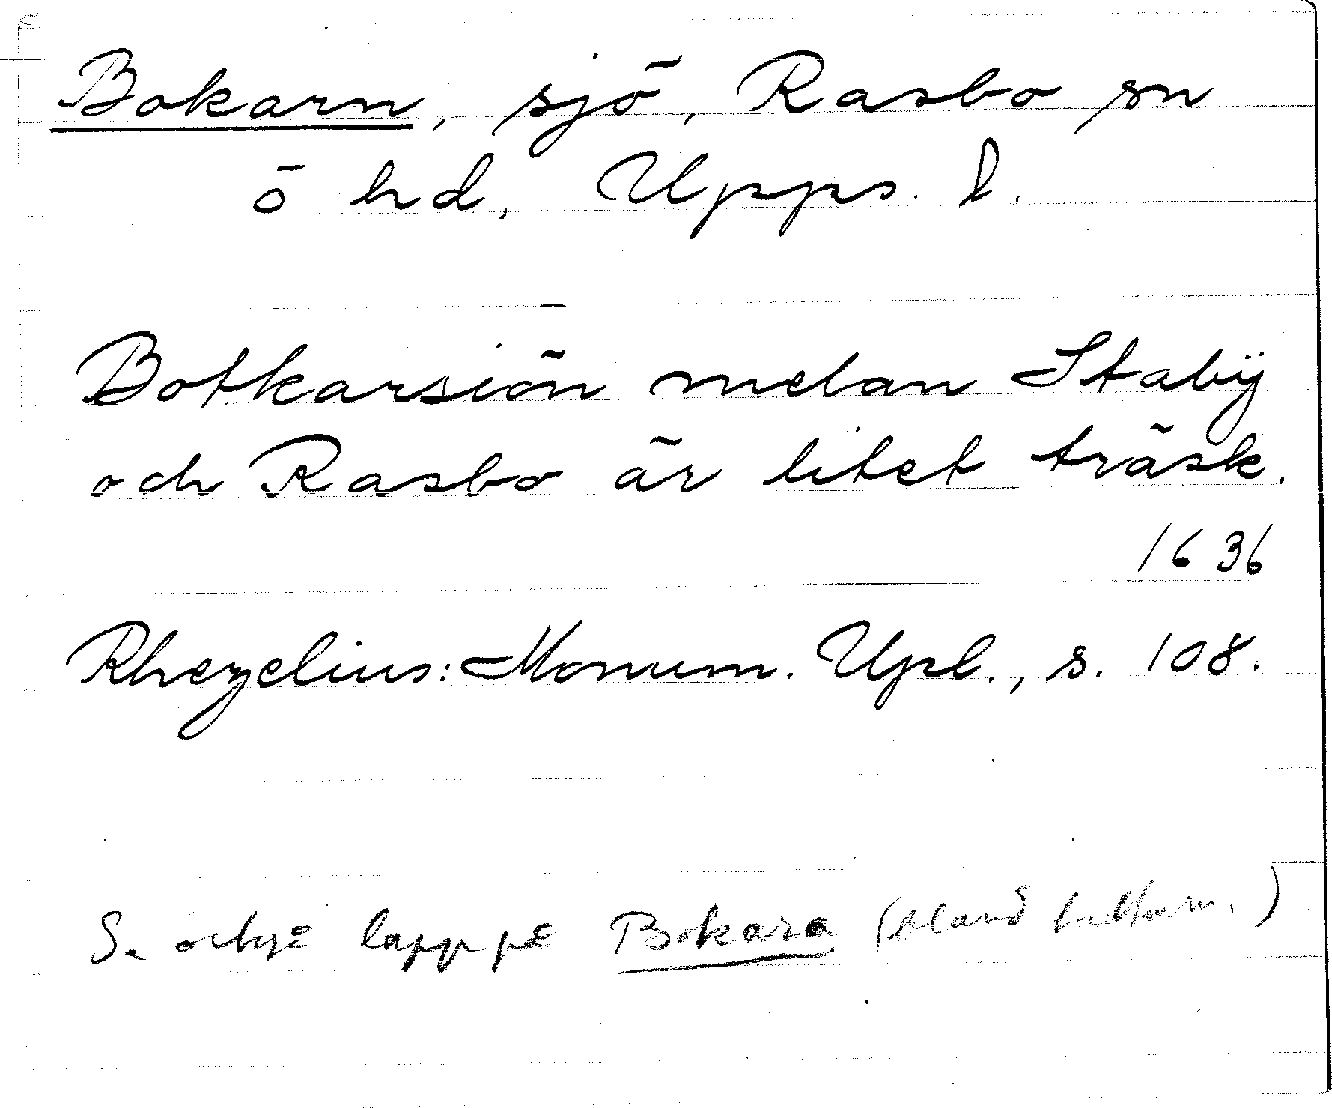 Bokarn, sjö, Rasbo sn
ö hd, Upps. l.
Botkarsiön melan Stabÿ
och Rasbo är litet träsk.
1636
Rhezelius: Monum. Upl., s. 108.
Se också lapp på Bokara (bland